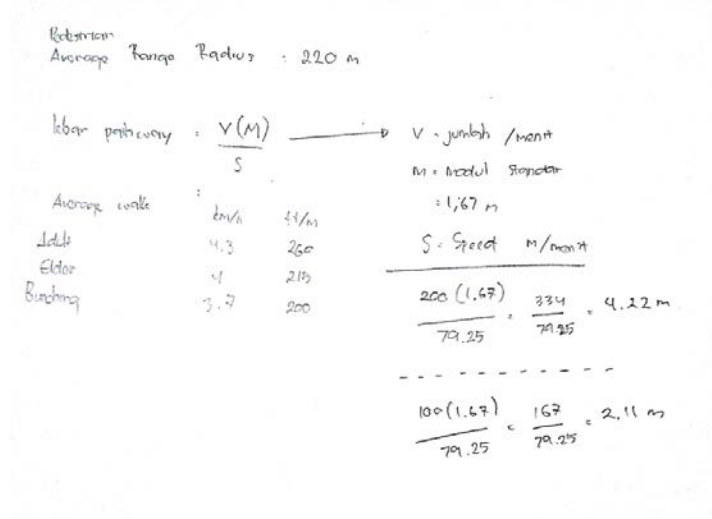 Pedestrian
Average Range Radius : 220 m
lebar pathway = V(M) / S
V = jumlah / menit
M = Modul Standar
= 1,67 m
S = Speed M/menit
Average walk :
km/h ft/m
Adult 4.3 260
Elder 4
Bunching 3.7 200
200 (1.67) / 79.25 = 334 / 79.25 = 4.22 m
100 (1.67) / 79.25 = 167 / 79.25 = 2,11 m